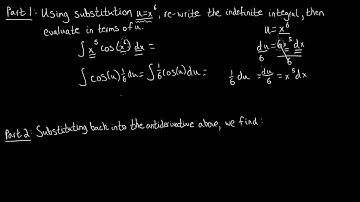 Part 1: Using substitution u=x⁶, re-write the indefinite integral, then
evaluate in terms of u.
∫ x⁵ cos(x⁶) dx =
∫ cos(u) 1/6 du = ∫ 1/6 cos(u) du =
u = x⁶
du/6 = 6x⁵ dx/6
1/6 du = du/6 = x⁵ dx
Part 2: Substituting back into the antiderivative above, we find: